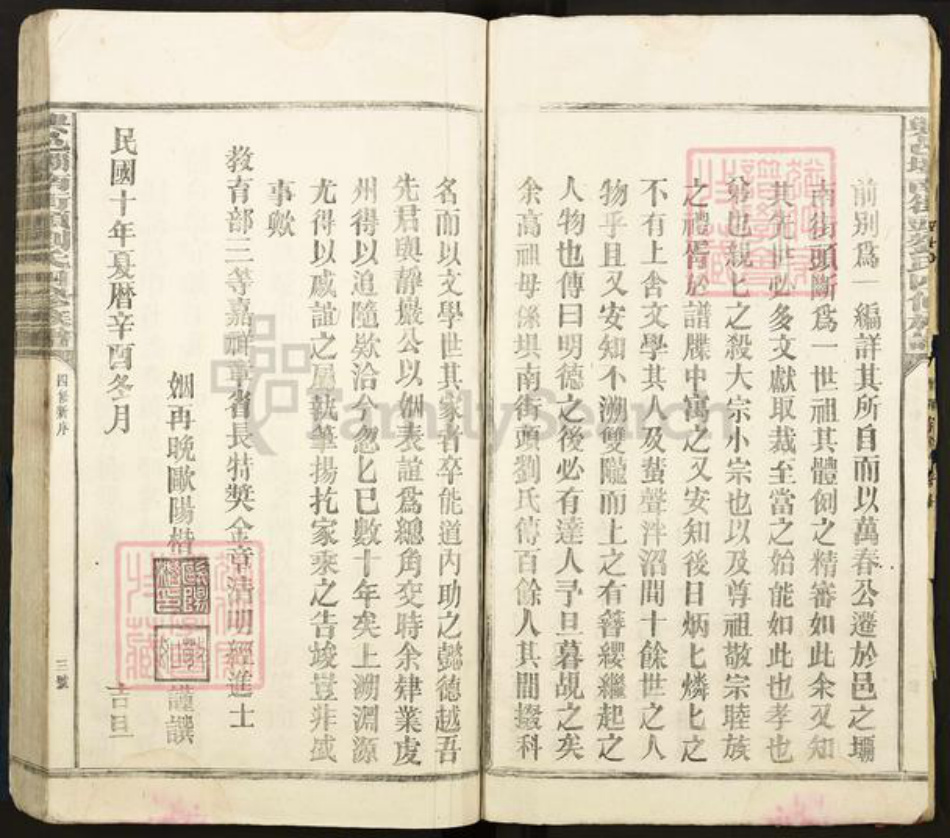 前別為一編詳其所自而以萬春公遷於邑之壩
南街頭斷為一世祖其體例之精審如此余又知
其先世必多文獻取裁至當之始能如此也孝也
弟也親匕之殺大宗小宗也以及尊祖敬宗睦族
之禮胥於譜牒中寓之又安知後日炳匕燐匕之
不有上舍文學其人及蜚聲泮沼間十餘世之人
物乎且又安知不溯雙隴而上之有簪纓繼起之
人物也傳曰明德之後必有達人予旦暮覘之矣
余高祖母係壩南街頭劉氏傳百餘人其間掇科
名而以文學世其家者卒能道內助之懿德越吾
先君與靜巖公以姻表誼為總角交時余肄業虔
州得以追隨欵洽今忽匕已數十年矣上溯淵源
尤得以戚誼之屬執筆揚扢家乘之告竣豈非盛
事歟
教育部三等嘉祥章省長特獎金章清明經進士
姻再晚歐陽楷 謹譔
民國十年夏曆辛酉冬月 吉旦
四修新序
三號
FamilySearch